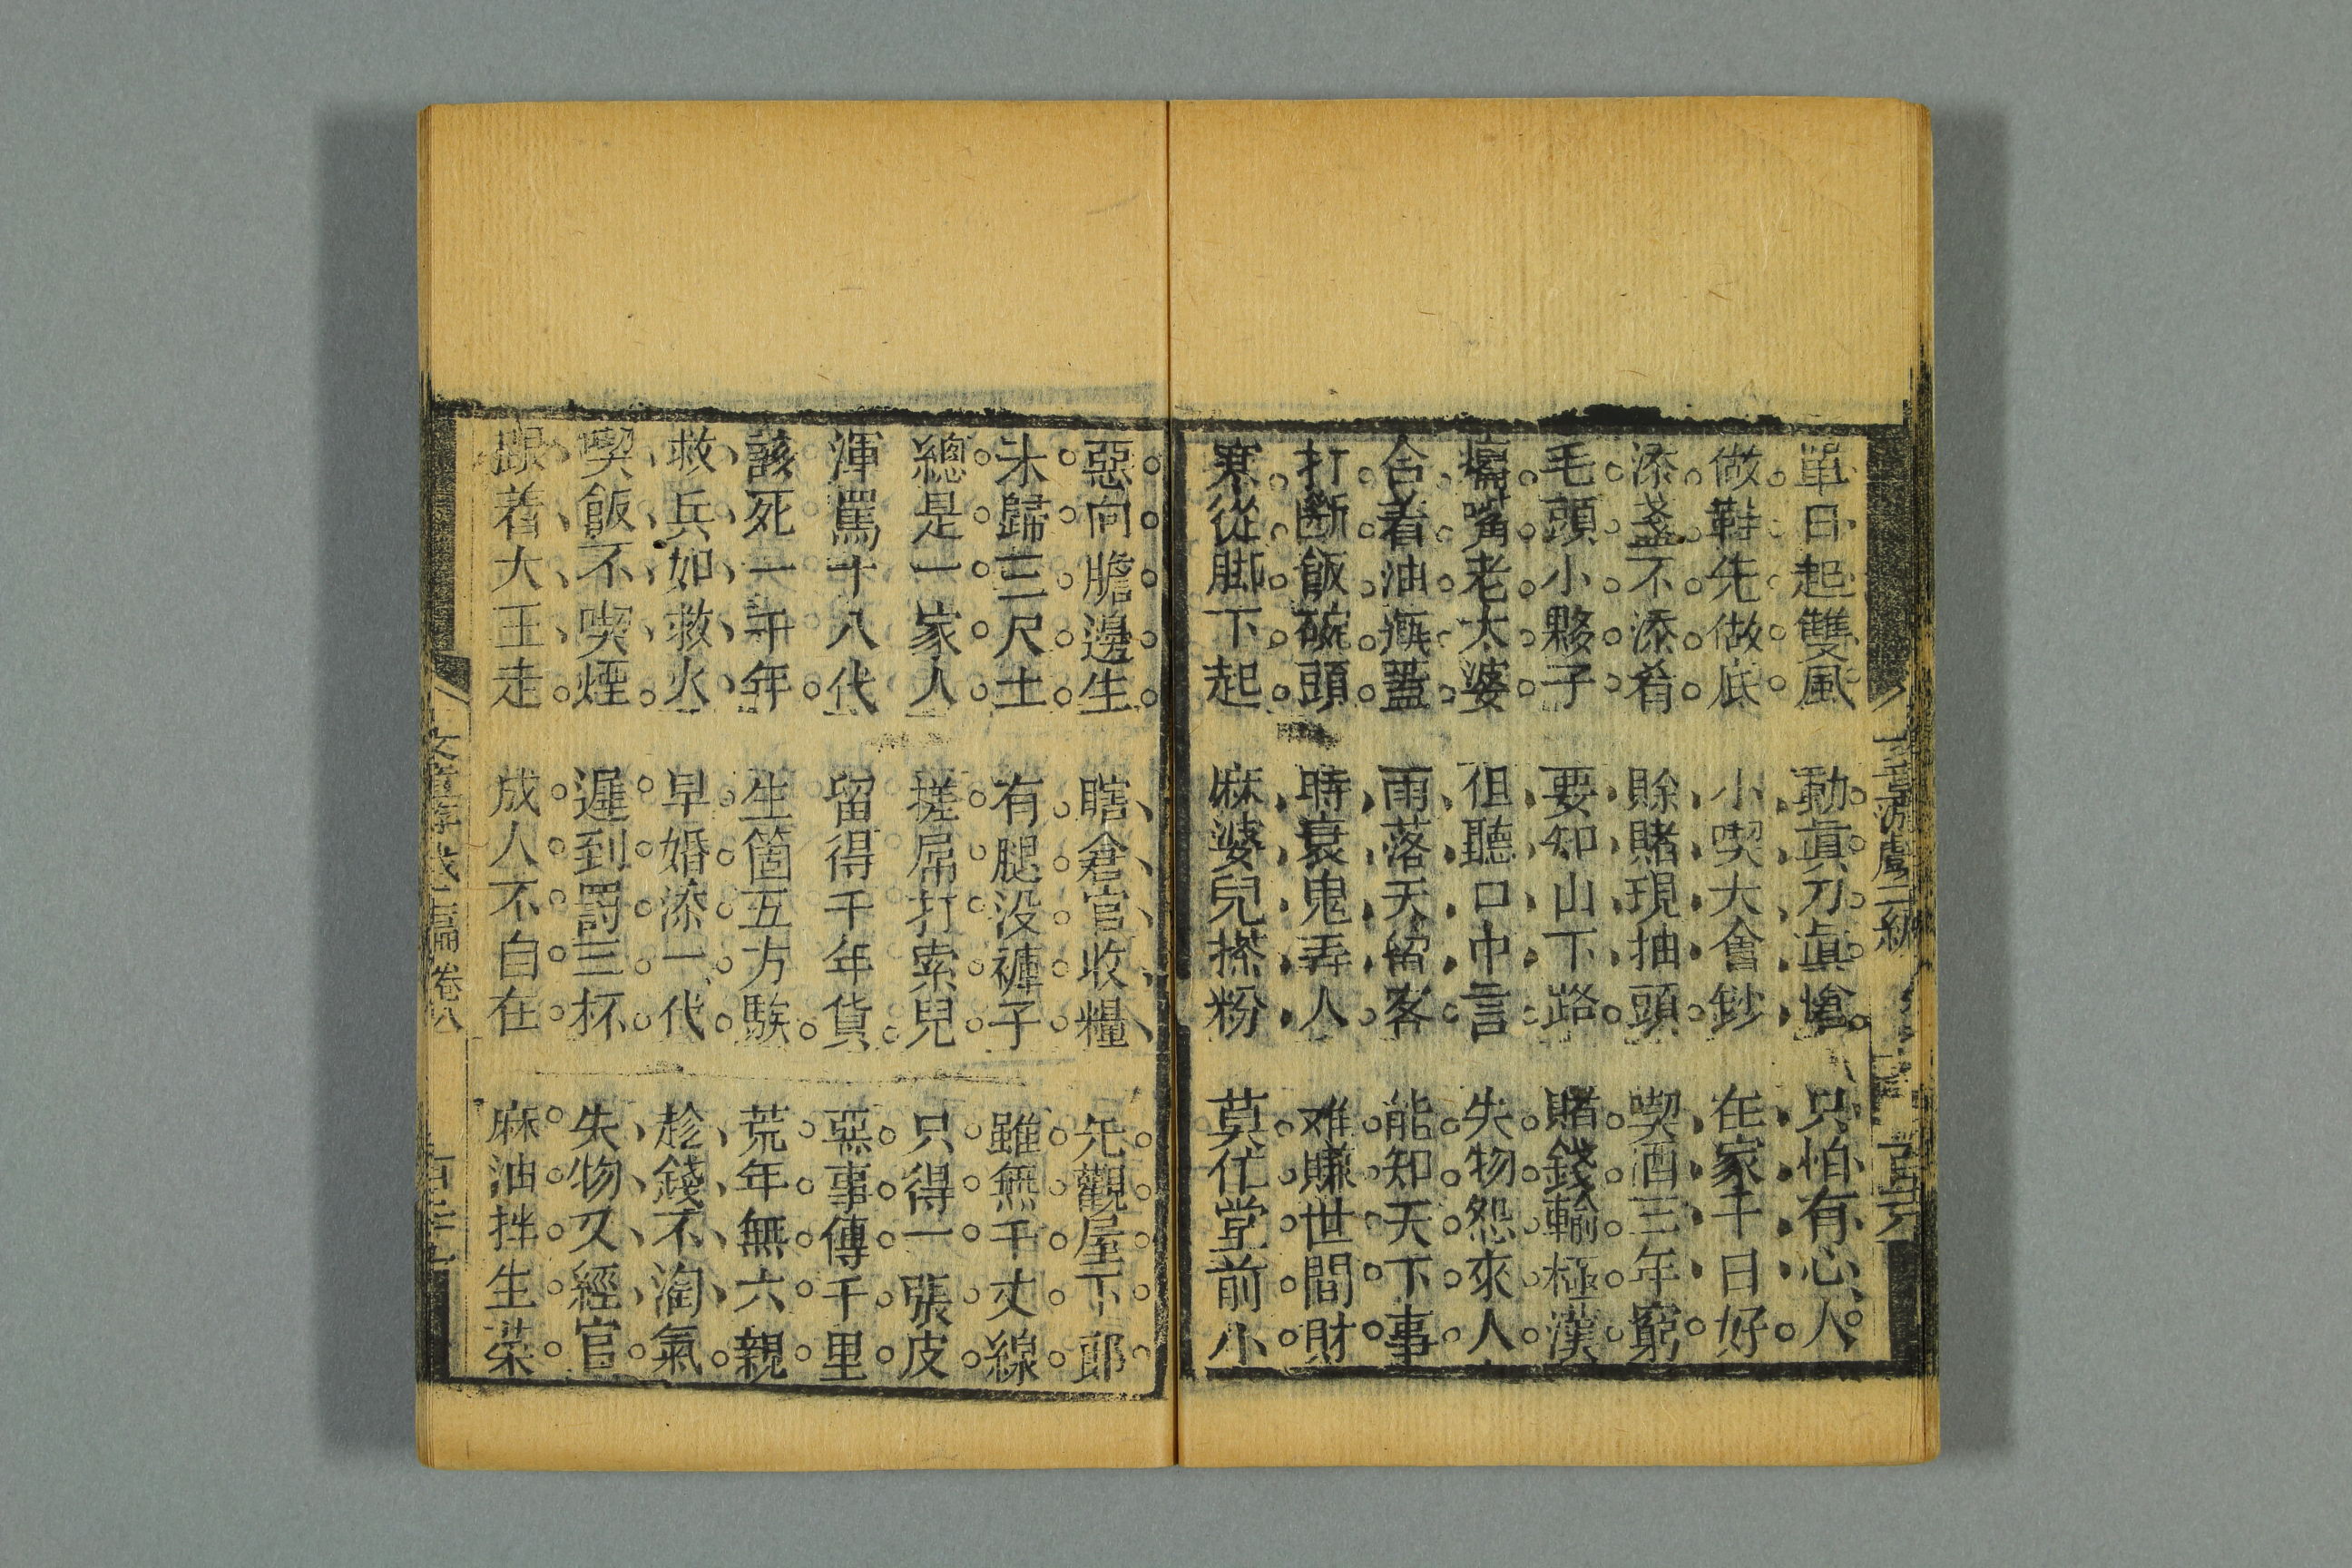 單日起雙風 動眞刀眞槍 只怕有心人
做鞋先做底 小喫大會鈔 在家千日好
添盞不添肴 賒賭現抽頭 喫酒三年窮
毛頭小夥子 要知山下路 賭錢輸極漢
癟嘴老太婆 但聽口中言 失物怨來人
合着油瓶蓋 雨落天留客 能知天下事
打斷飯碗頭 時衰鬼弄人 难賺世間財
寒從脚下起 麻婆兒搽粉 莫作堂前小
惡向膽邊生 瞎倉官收糧 先觀屋下郎
未歸三尺土 有腿没褲子 雖無千丈線
總是一家人 搓屌打索兒 只得一張皮
渾罵十八代 留得千年貨 惡事傳千里
該死一千年 生箇五方騃 荒年無六親
救兵如救火 早婚添一代 趁錢不淘氣
喫飯不喫煙 遲到罰三杯 失物又經官
跟着大王走 成人不自在 麻油拌生菜
卷八